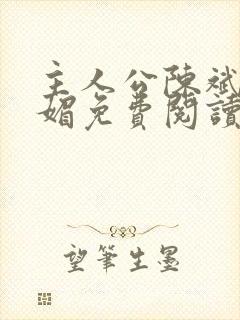 主人公陳斌
媚免費閱讀
望筆生墨